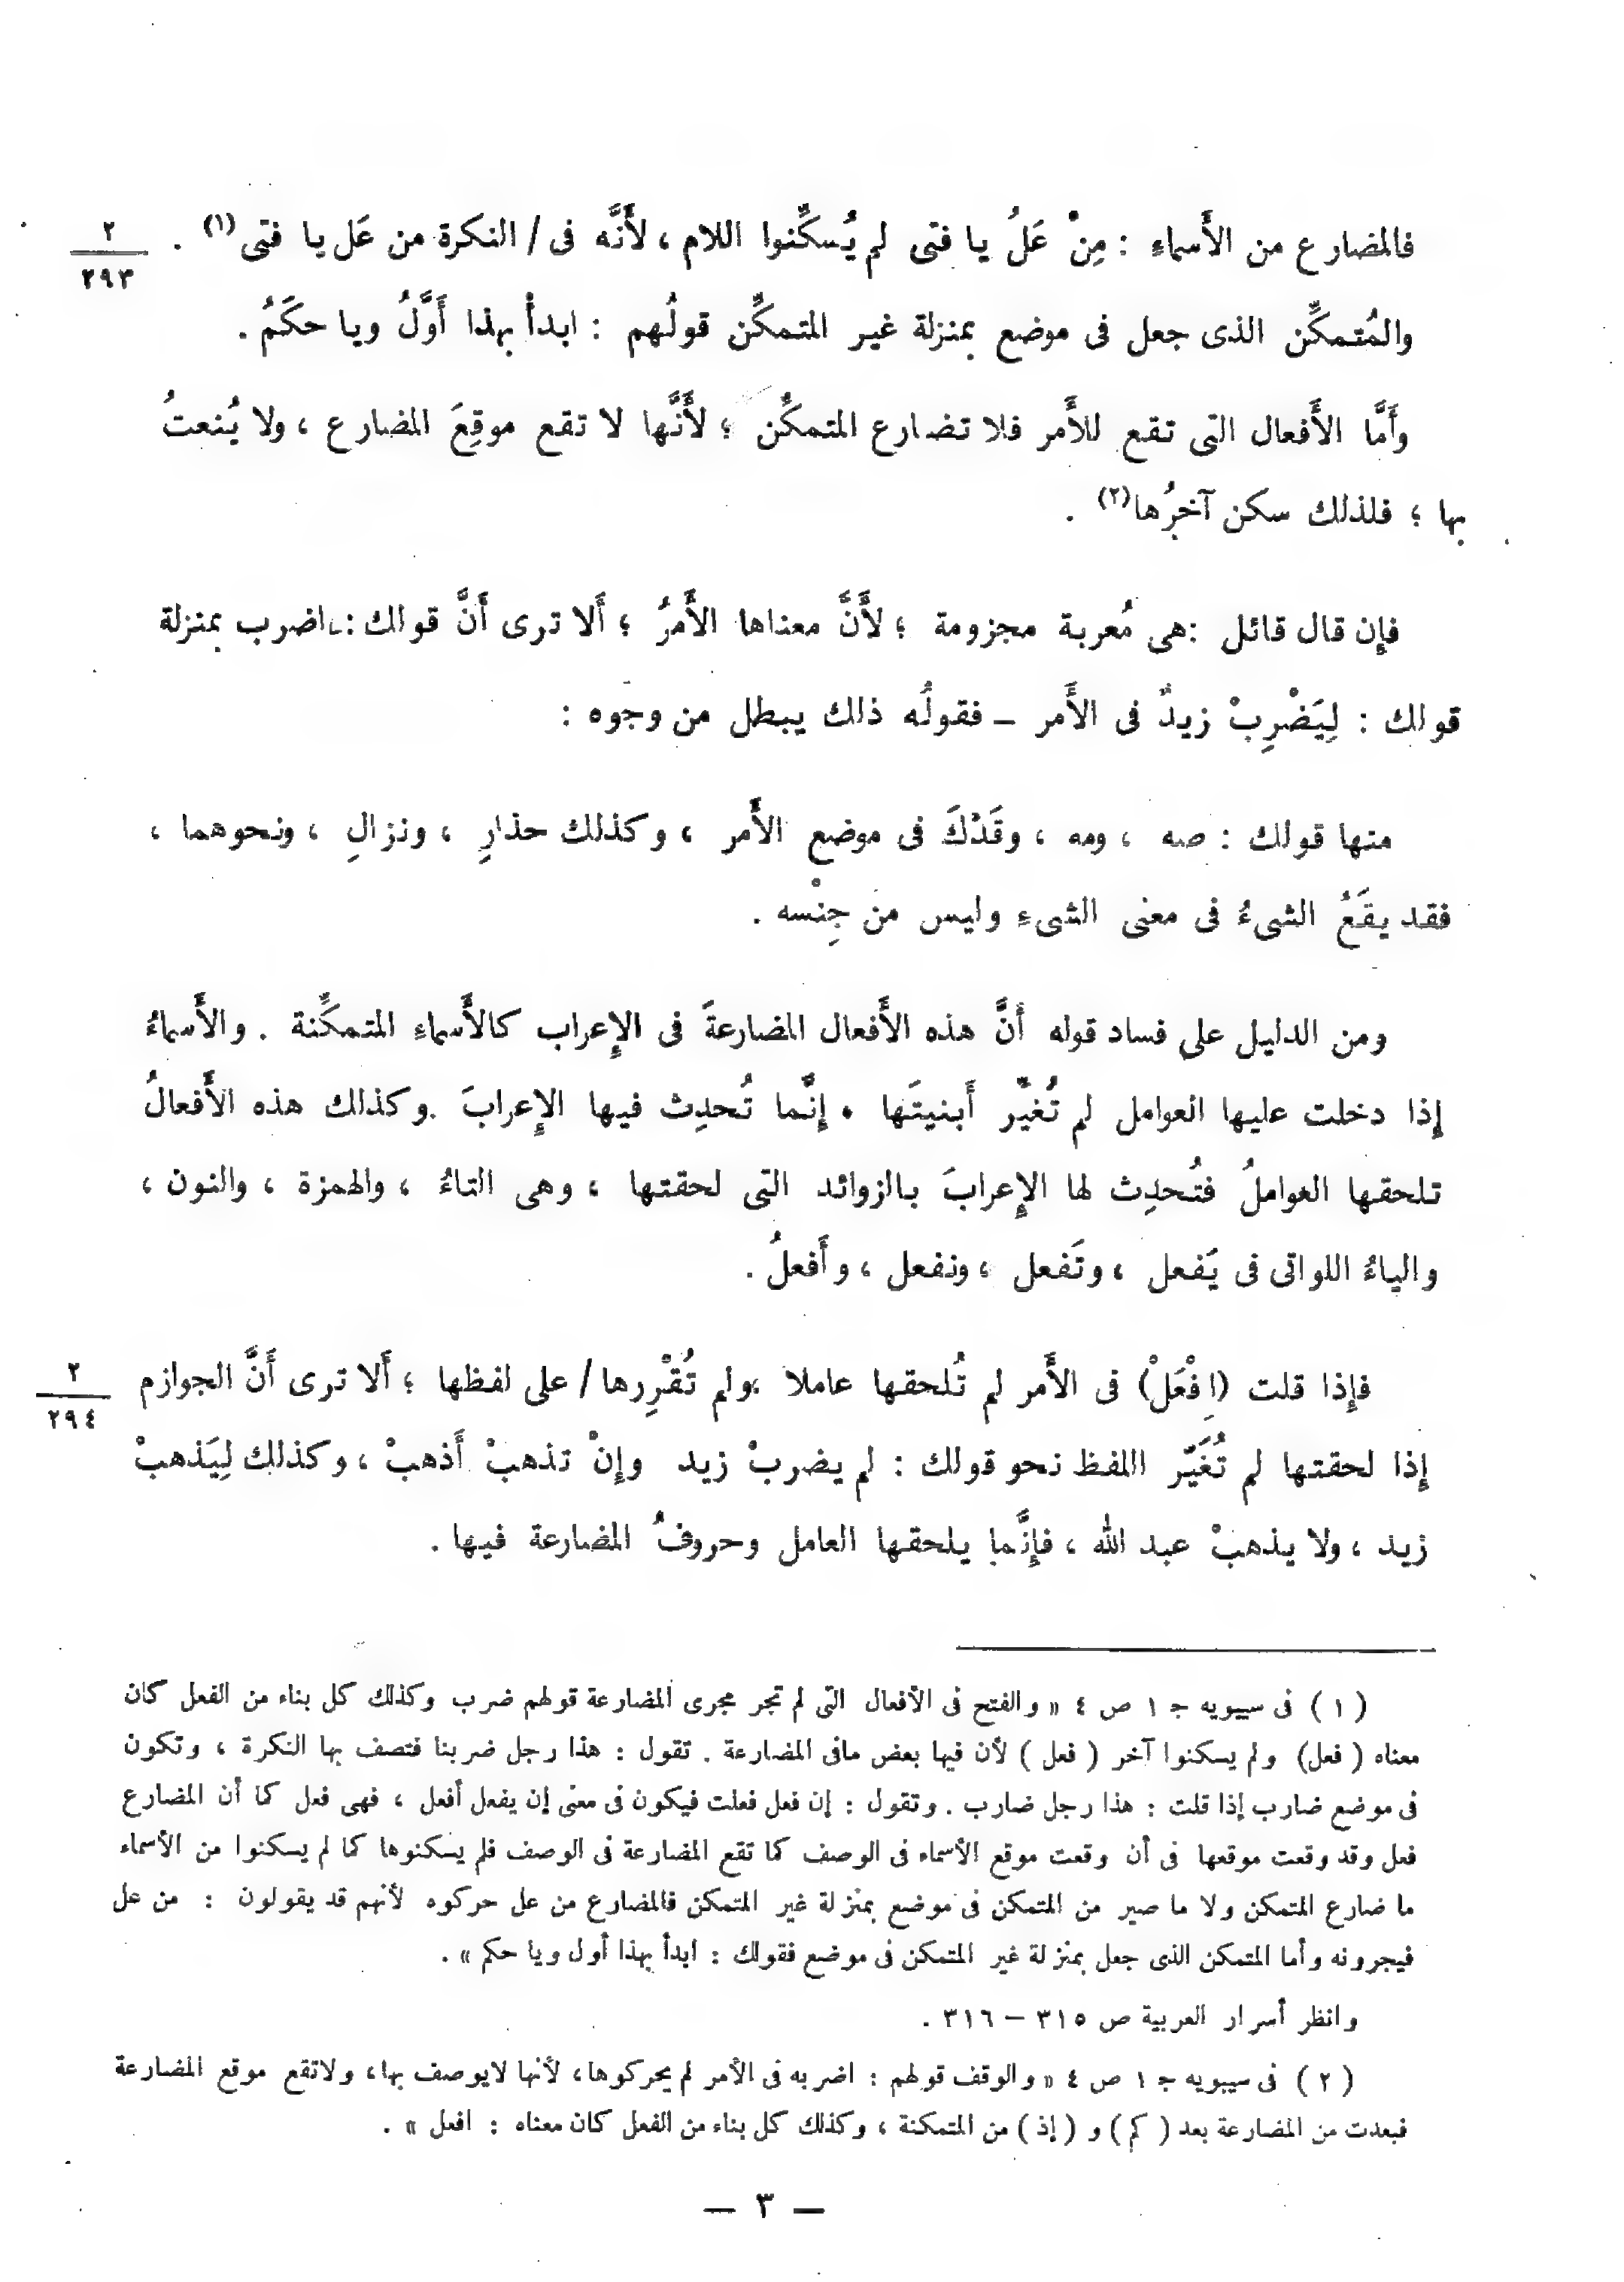 فالمضارع من الأَسماءِ : مِنْ عَلُ يا فتى لم يُسكِّنوا اللام ، لأَنَّه فى / النكرة من عَل يا فتى (١) .
٢
٢٩٣
والمُتمكِّن الذى جعل فى موضع بمنزلة غير المتمكِّن قولُهم : ابدأْ بهذا أَوَّلُ ويا حكَمُ .
وأَمَّا الأَفعال التى تقع للأَمر فلا تضارع المتمكِّن ؛ لأَنَّها لا تقع موقِعَ المضارع ، ولا يُنعتُ
بها ؛ فلذلك سكن آخرُها (٢) .
فإِن قال قائل : هى مُعربة مجزومة ؛ لأَنَّ معناها الأَمرُ ؛ أَلا ترى أَنَّ قولك : اضرب بمنزلة
قولك : لِيَضْرِبْ زيدٌ فى الأَمر – فقولُه ذلك يبطل من وجوه :
منها قولك : صه ، ومه ، وقَدْكَ فى موضع الأَمر ، وكذلك حذارِ ، ونزالِ ، ونحوهما ،
فقد يقَعُ الشىءُ فى معنى الشىءِ وليس من جِنْسه .
ومن الدليل على فساد قوله أَنَّ هذه الأَفعال المضارعةَ فى الإِعراب كالأَسماءِ المتمكِّنة . والأَسماءُ
إِذا دخلت عليها العوامل لم تُغيِّر أَبنيتَها . إِنَّما تُحدِث فيها الإِعرابَ . وكذلك هذه الأَفعالُ
تلحقها العواملُ فتُحدِث لها الإِعرابَ بالزوائد التى لحقتها ، وهى التاءُ ، والهمزة ، والنون ،
والياءُ اللواتى فى يَفعل ، وتَفعل ، ونفعل ، وأَفعلُ .
فإِذا قلت (اِفْعَلْ) فى الأَمر لم تُلحقها عاملا ، ولم تُقْرِرها / على لفظها ؛ أَلا ترى أَنَّ الجوازم
٢
٢٩٤
إِذا لحقتها لم تُغَيِّر اللفظ نحو قولك : لم يضربْ زيد وإِنْ تذهبْ أَذهبْ ، وكذلك لِيَذهبْ
زيد ، ولا يذهبْ عبد الله ، فإِنَّما يلحقها العامل وحروفُ المضارعة فيها .
( ١ ) فى سيبويه جـ ١ ص ٤ « والفتح فى الأفعال التى لم تجر مجرى المضارعة قولهم ضرب وكذلك كل بناء من الفعل كان
معناه ( فعل) ولم يسكنوا آخر ( فعل ) لأن فيها بعض مافى المضارعة . تقول : هذا رجل ضربنا فتصف بها النكرة ، وتكون
فى موضع ضارب إذا قلت : هذا رجل ضارب . وتقول : إن فعل فعلت فيكون فى معنى إن يفعل أفعل ، فهى فعل كما أن المضارع
فعل وقد وقعت موقعها فى أن وقعت موقع الأسماء فى الوصف كما تقع المضارعة فى الوصف فلم يسكنوها كما لم يسكنوا من الأسماء
ما ضارع المتمكن ولا ما صير من المتمكن فى موضع بمنزلة غير المتمكن فالمضارع من عل حركوه لأنهم قد يقولون : من عل
فيجرونه وأما المتمكن الذى جعل بمنزلة غير المتمكن فى موضع فقولك : ابدأ بهذا أول ويا حكم » .
وانظر أسرار العربية ص ٣١٥ – ٣١٦ .
( ٢ ) فى سيبويه جـ ١ ص ٤ « والوقف قولهم : اضربه فى الأمر لم يحركوها، لأنها لايوصف بها، ولاتقع موقع المضارعة
فبعدت من المضارعة بعد ( كم ) و ( إذ ) من المتمكنة ، وكذلك كل بناء من الفعل كان معناه : افعل » .
— ٣ —